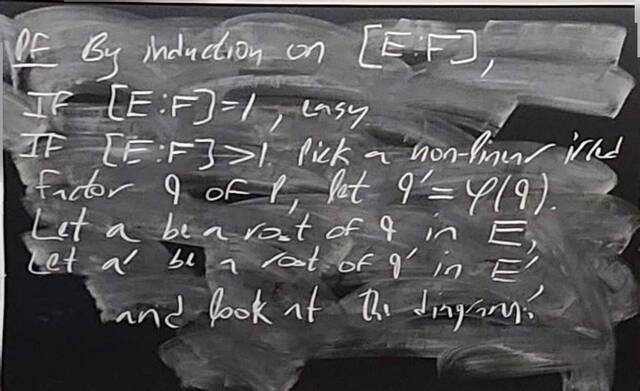 Pf By induction on [E:F],
If [E:F]=1, easy.
If [E:F]>1. Pick a non-linear irred
factor q of p, let q'=φ(q).
Let a be a root of q in E,
Let a' be a root of q' in E',
and look at the diagram: